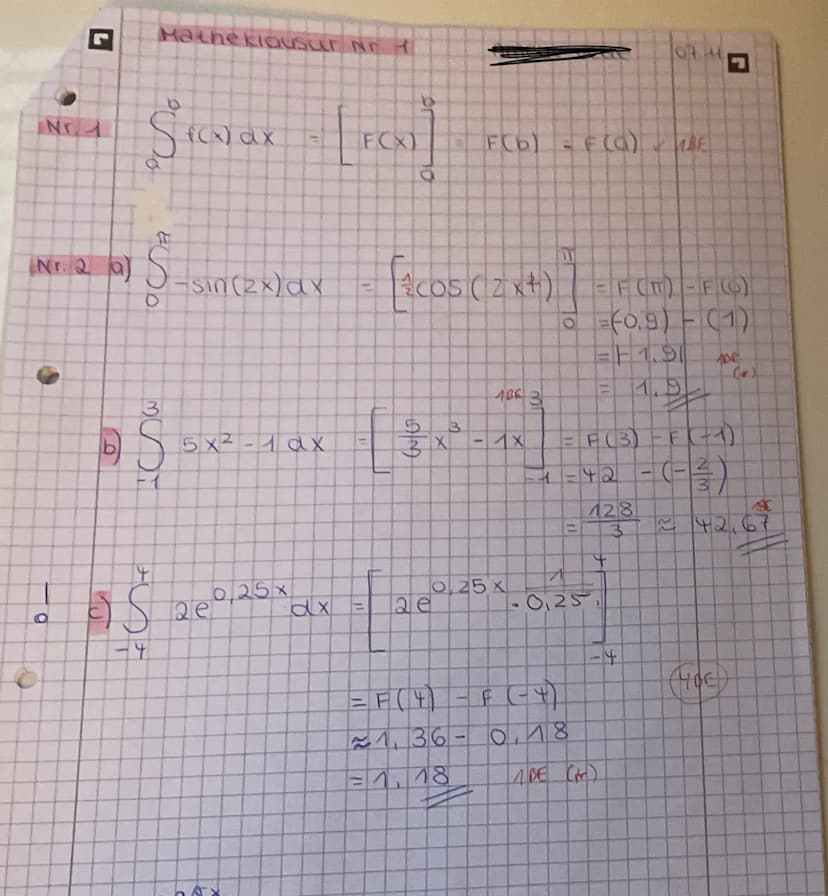 Matheklausur Nr. 1 07.11
Nr. 1 ∫_a^b f(x) dx = [F(x)]_a^b = F(b) - F(a) ✓ 1BE
Nr. 2 a) ∫_0^π -sin(2x) dx = [1/2 cos(2x)]_0^π = F(π) - F(0)
= (-0,9) - (1)
= |-1,9| 1BE
= 1,9
b) ∫_{-1}^3 5x² - 1 dx = [5/3 x³ - 1x]_{-1}^3 = F(3) - F(-1) 1BE
= 42 - (-2/3)
= 128/3 ≈ 42,67 1BE
! c) ∫_{-4}^4 2e^{0,25x} dx = [2e^{0,25x} · 1/0,25]_{-4}^4
= F(4) - F(-4) 4BE
≈ 1,36 - 0,18
= 1,18 1BE